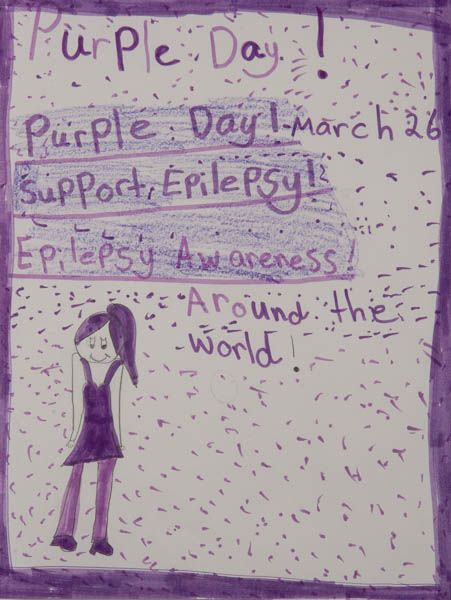 Purple Day!
Purple Day! March 26
Support, Epilepsy!
Epilepsy Awareness!
Around the
world!